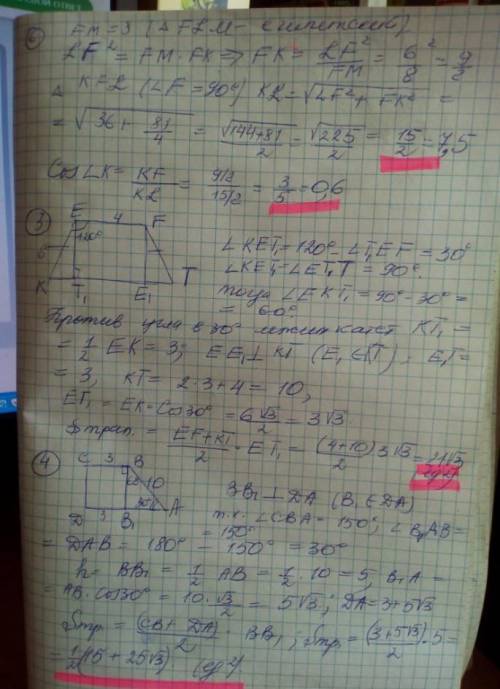 ② FM = 8 (Δ FLM - египетский)
LF² = FM · FK ⇒ FK = LF²/FM = 6²/8 = 9/2
Δ KFL (∠F = 90°) KL = √(LF² + FK²) =
= √(36 + 81/4) = √(144+81)/2 = √225/2 = 15/2 = 7,5
Cos∠K = KF/KL = (9/2)/(15/2) = 3/5 = 0,6
③ E 4 F
120°
6
K T₁ E₁ T
∠KET₁ = 120° - ∠T₁EF = 30°
∠KET₁ = ∠ET₁T = 90°.
тогда ∠EKT₁ = 90° - 30° =
= 60°.
Против угла в 30° лежит катет KT₁ =
= 1/2 EK = 3; EE₁ ⊥ KT (E₁ ∈ KT); E₁T =
= 3, KT = 2·3+4 = 10,
ET₁ = EK·Cos30° = 6 √3/2 = 3√3
Sтрап. = (EF+KT)/2 · ET₁ = (4+10)/2 · 3√3 = 21√3
④ C 3 B
10
D 3 B₁ A
BB₁ ⊥ DA (B₁ ∈ DA)
т.к. ∠CBA = 150°, ∠B₁AB =
= DAB = 180° - 150° = 30°
h = BB₁ = 1/2 AB = 1/2 · 10 = 5, B₁A =
= AB·cos30° = 10 · √3/2 = 5√3; DA = 3+5√3
Sтр = (CB + DA)/2 · BB₁; Sтр = (3+5√3)/2 · 5 =
= 1/2(15 + 25√3) (ед²)